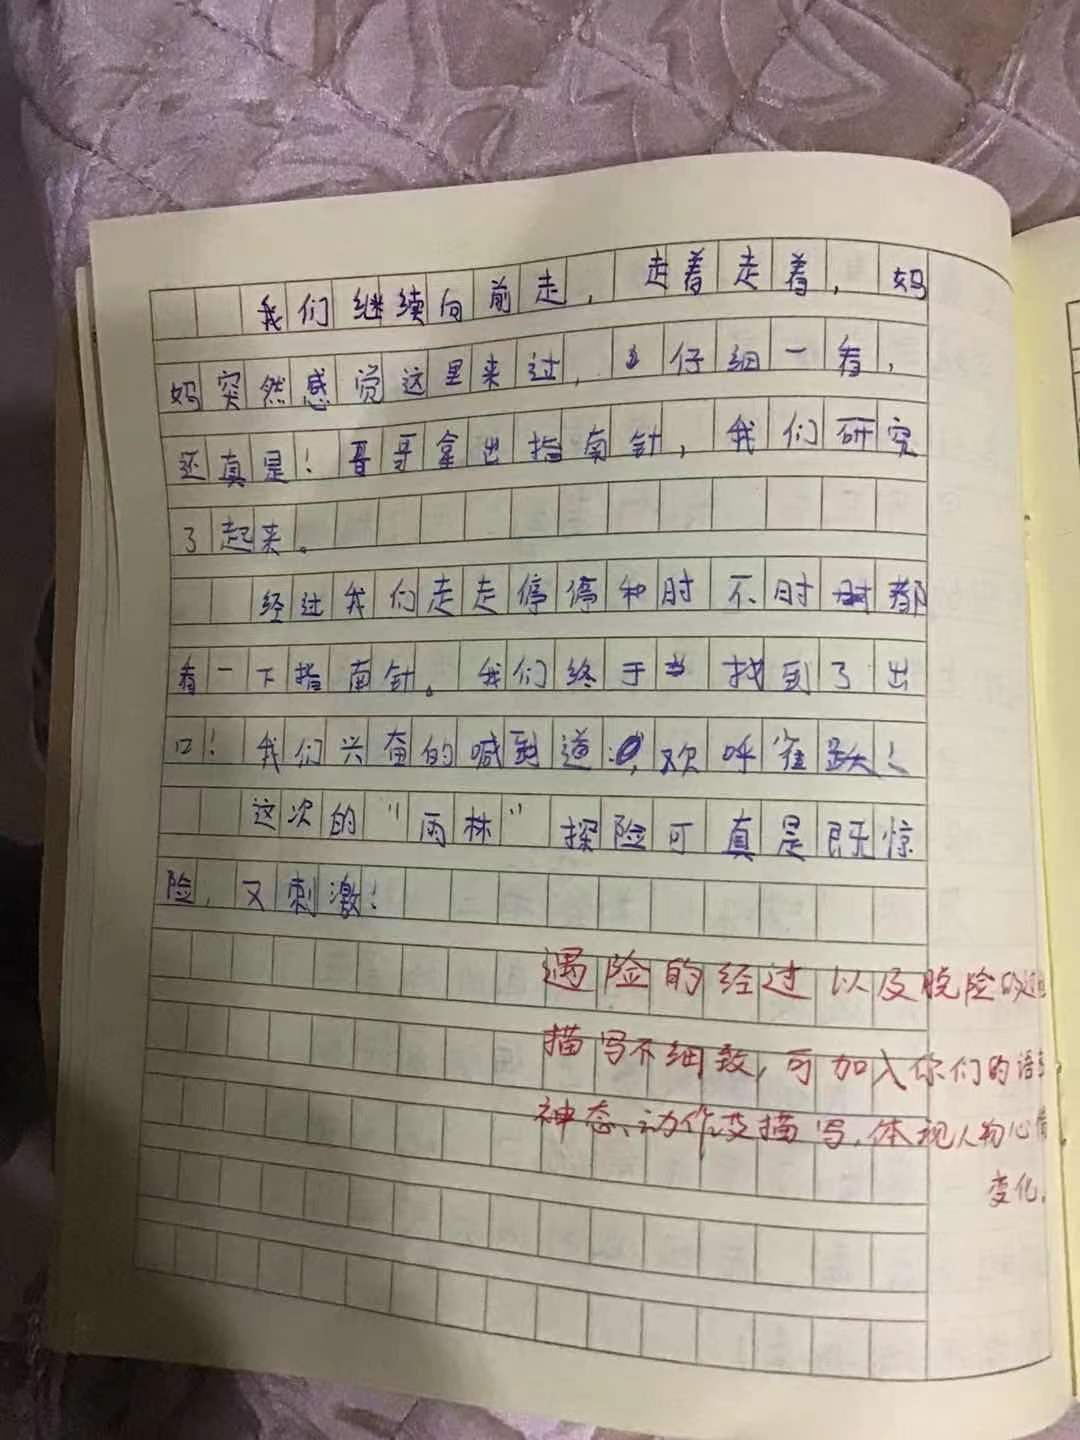 我们继续向前走，走着走着，妈
妈突然感觉这里来过，仔细一看，
还真是！哥哥拿出指南针，我们研究
了起来。
经过我们走走停停和时不时都
看一下指南针。我们终于找到了出
口！我们兴奋的喊到道：，欢呼雀跃！
这次的“雨林”探险可真是既惊
险，又刺激！
遇险的经过以及脱险的
描写不细致，可加入你们的语
神态、动作及描写，体现人物心情
变化。